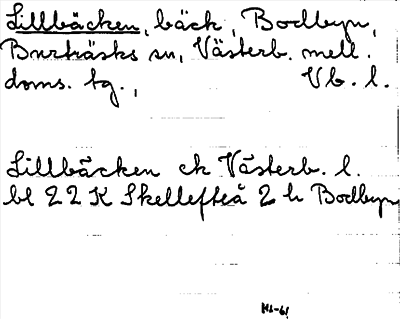 Lillbäcken, bäck, Bodbyn,
Burträsks sn, Västerb. mell.
doms. tg., Vb. l.
Lillbäcken ek Västerb. l.
bl 22 K Skellefteå 2 h Bodbyn